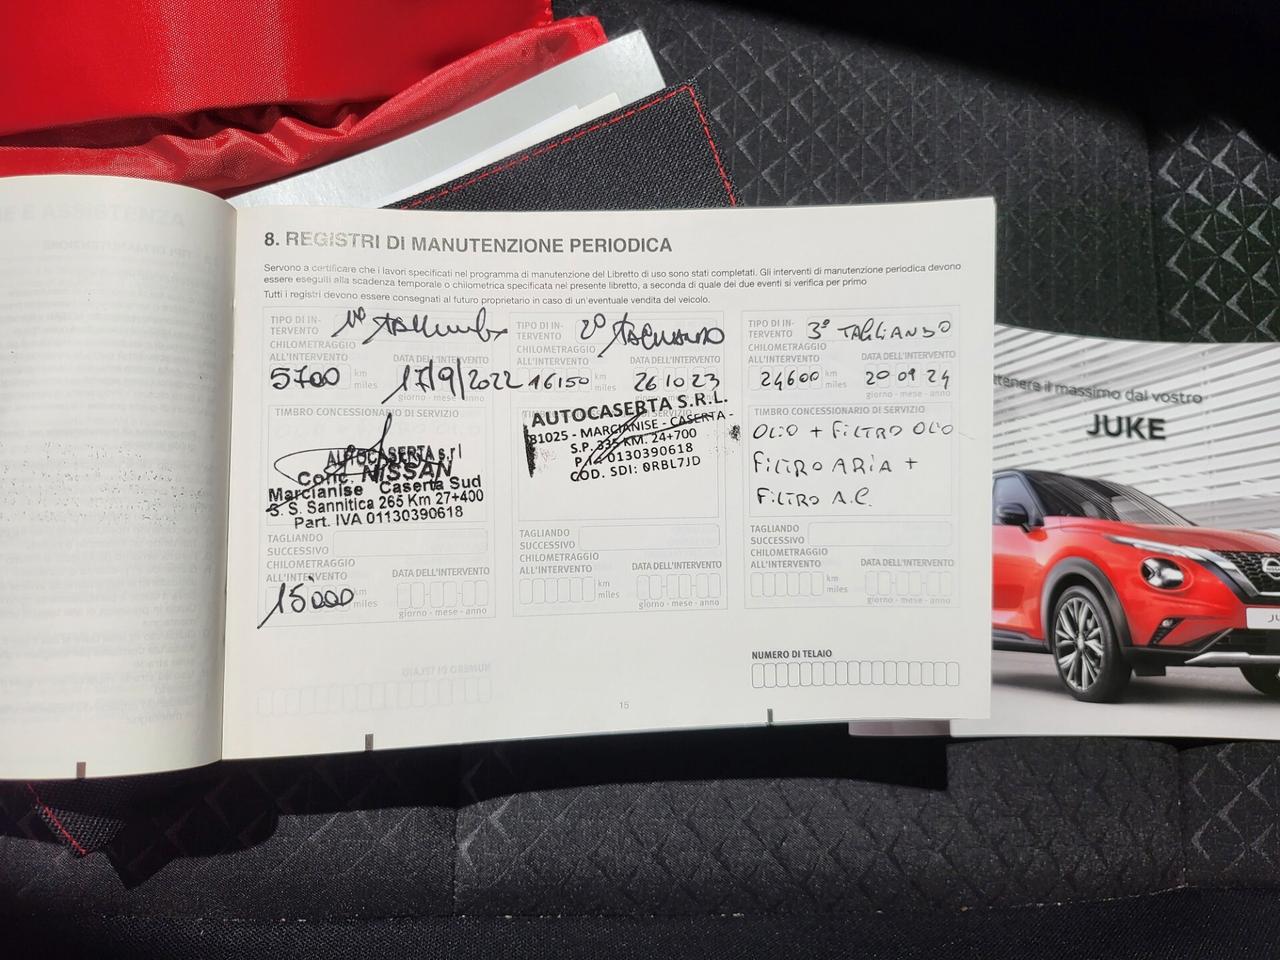 8. REGISTRI DI MANUTENZIONE PERIODICA
Servono a certificare che i lavori specificati nel programma di manutenzione del Libretto di uso sono stati completati. Gli interventi di manutenzione periodica devono
essere eseguiti alla scadenza temporale o chilometrica specificata nel presente libretto, a seconda di quale dei due eventi si verifica per primo
Tutti i registri devono essere consegnati al futuro proprietario in caso di un'eventuale vendita del veicolo.
TIPO DI IN-
TERVENTO
CHILOMETRAGGIO
ALL'INTERVENTO
DATA DELL'INTERVENTO
5700 km
miles
17/9/2022
giorno - mese - anno
TIMBRO CONCESSIONARIO DI SERVIZIO
AUTOCASERTA s.r.l
Conc. NISSAN
Marcianise Caserta Sud
S. S. Sannitica 265 Km 27+400
Part. IVA 01130390618
TAGLIANDO
SUCCESSIVO
CHILOMETRAGGIO
ALL'INTERVENTO
DATA DELL'INTERVENTO
15000 km
miles
giorno - mese - anno
TIPO DI IN-
TERVENTO
2° TAGLIANDO
CHILOMETRAGGIO
ALL'INTERVENTO
DATA DELL'INTERVENTO
16150 km
miles
26 10 23
giorno - mese - anno
AUTOCASERTA S.R.L.
81025 - MARCIANISE - CASERTA -
S.P. 335 KM. 24+700
0130390618
COD. SDI: 0RBL7JD
TAGLIANDO
SUCCESSIVO
CHILOMETRAGGIO
ALL'INTERVENTO
DATA DELL'INTERVENTO
km
miles
giorno - mese - anno
TIPO DI IN-
TERVENTO
3° TAGLIANDO
CHILOMETRAGGIO
ALL'INTERVENTO
DATA DELL'INTERVENTO
24600 km
miles
20 09 24
giorno - mese - anno
TIMBRO CONCESSIONARIO DI SERVIZIO
OLIO + FILTRO OLIO
FILTRO ARIA +
FILTRO A.C.
TAGLIANDO
SUCCESSIVO
CHILOMETRAGGIO
ALL'INTERVENTO
DATA DELL'INTERVENTO
km
miles
giorno - mese - anno
NUMERO DI TELAIO
15
ttenere il massimo dal vostro
JUKE